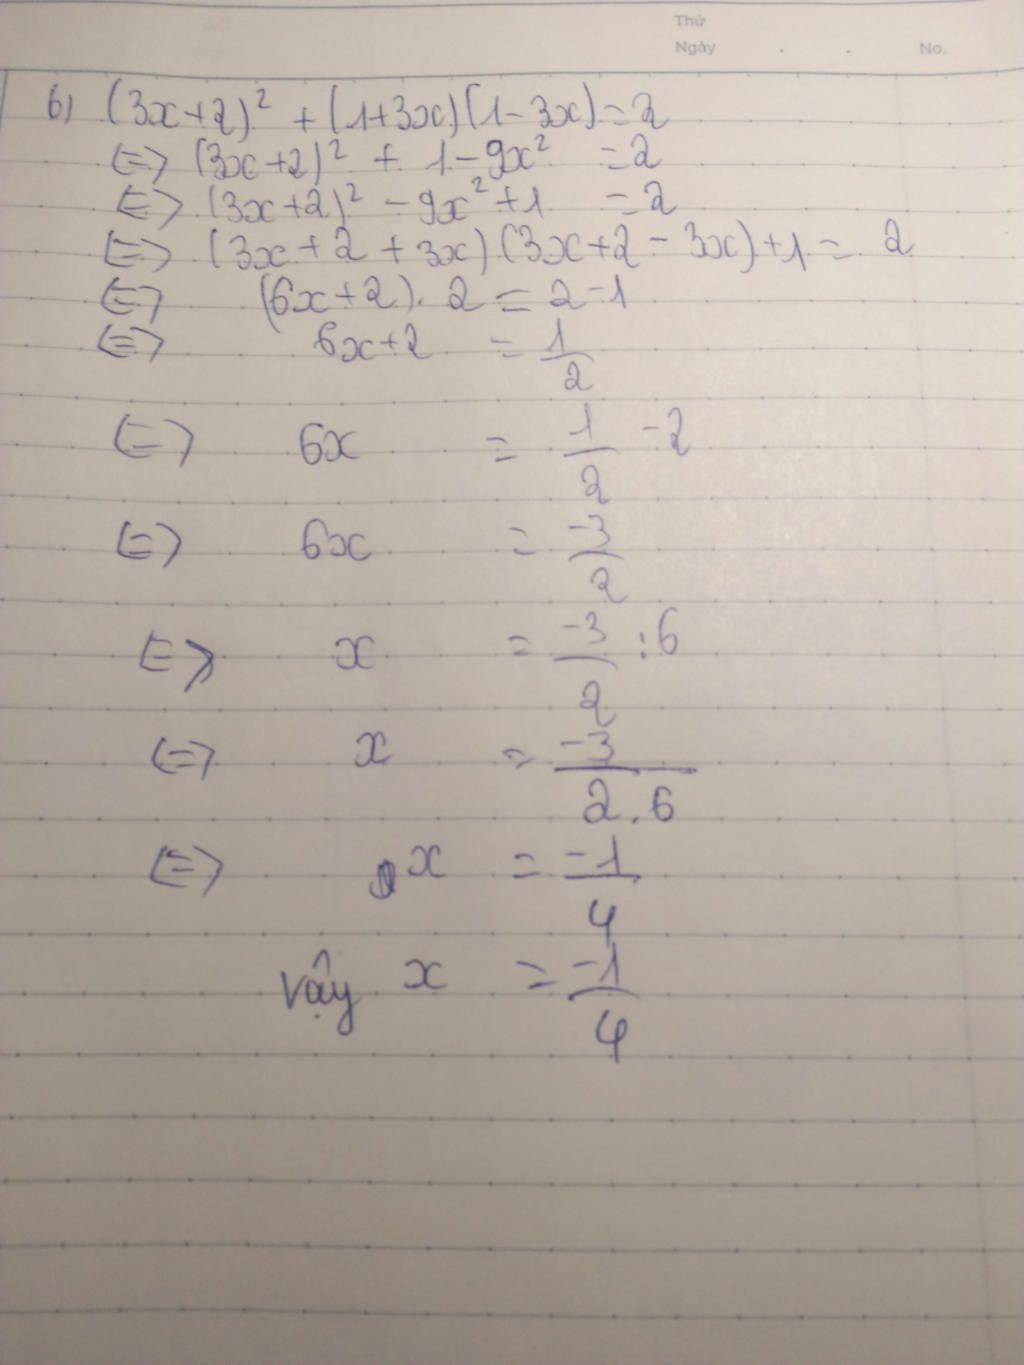 Thứ
Ngày . . No.
b) (3x+2)² + (1+3x)(1-3x) = 2
<=> (3x+2)² + 1 - 9x² = 2
<=> (3x+2)² - 9x² + 1 = 2
<=> (3x + 2 + 3x) (3x+2 - 3x) + 1 = 2
<=> (6x+2) . 2 = 2 - 1
<=> 6x+2 = 1/2
<=> 6x = 1/2 - 2
<=> 6x = -3/2
<=> x = -3/2 : 6
<=> x = -3/2.6
<=> x = -1/4
Vậy x = -1/4